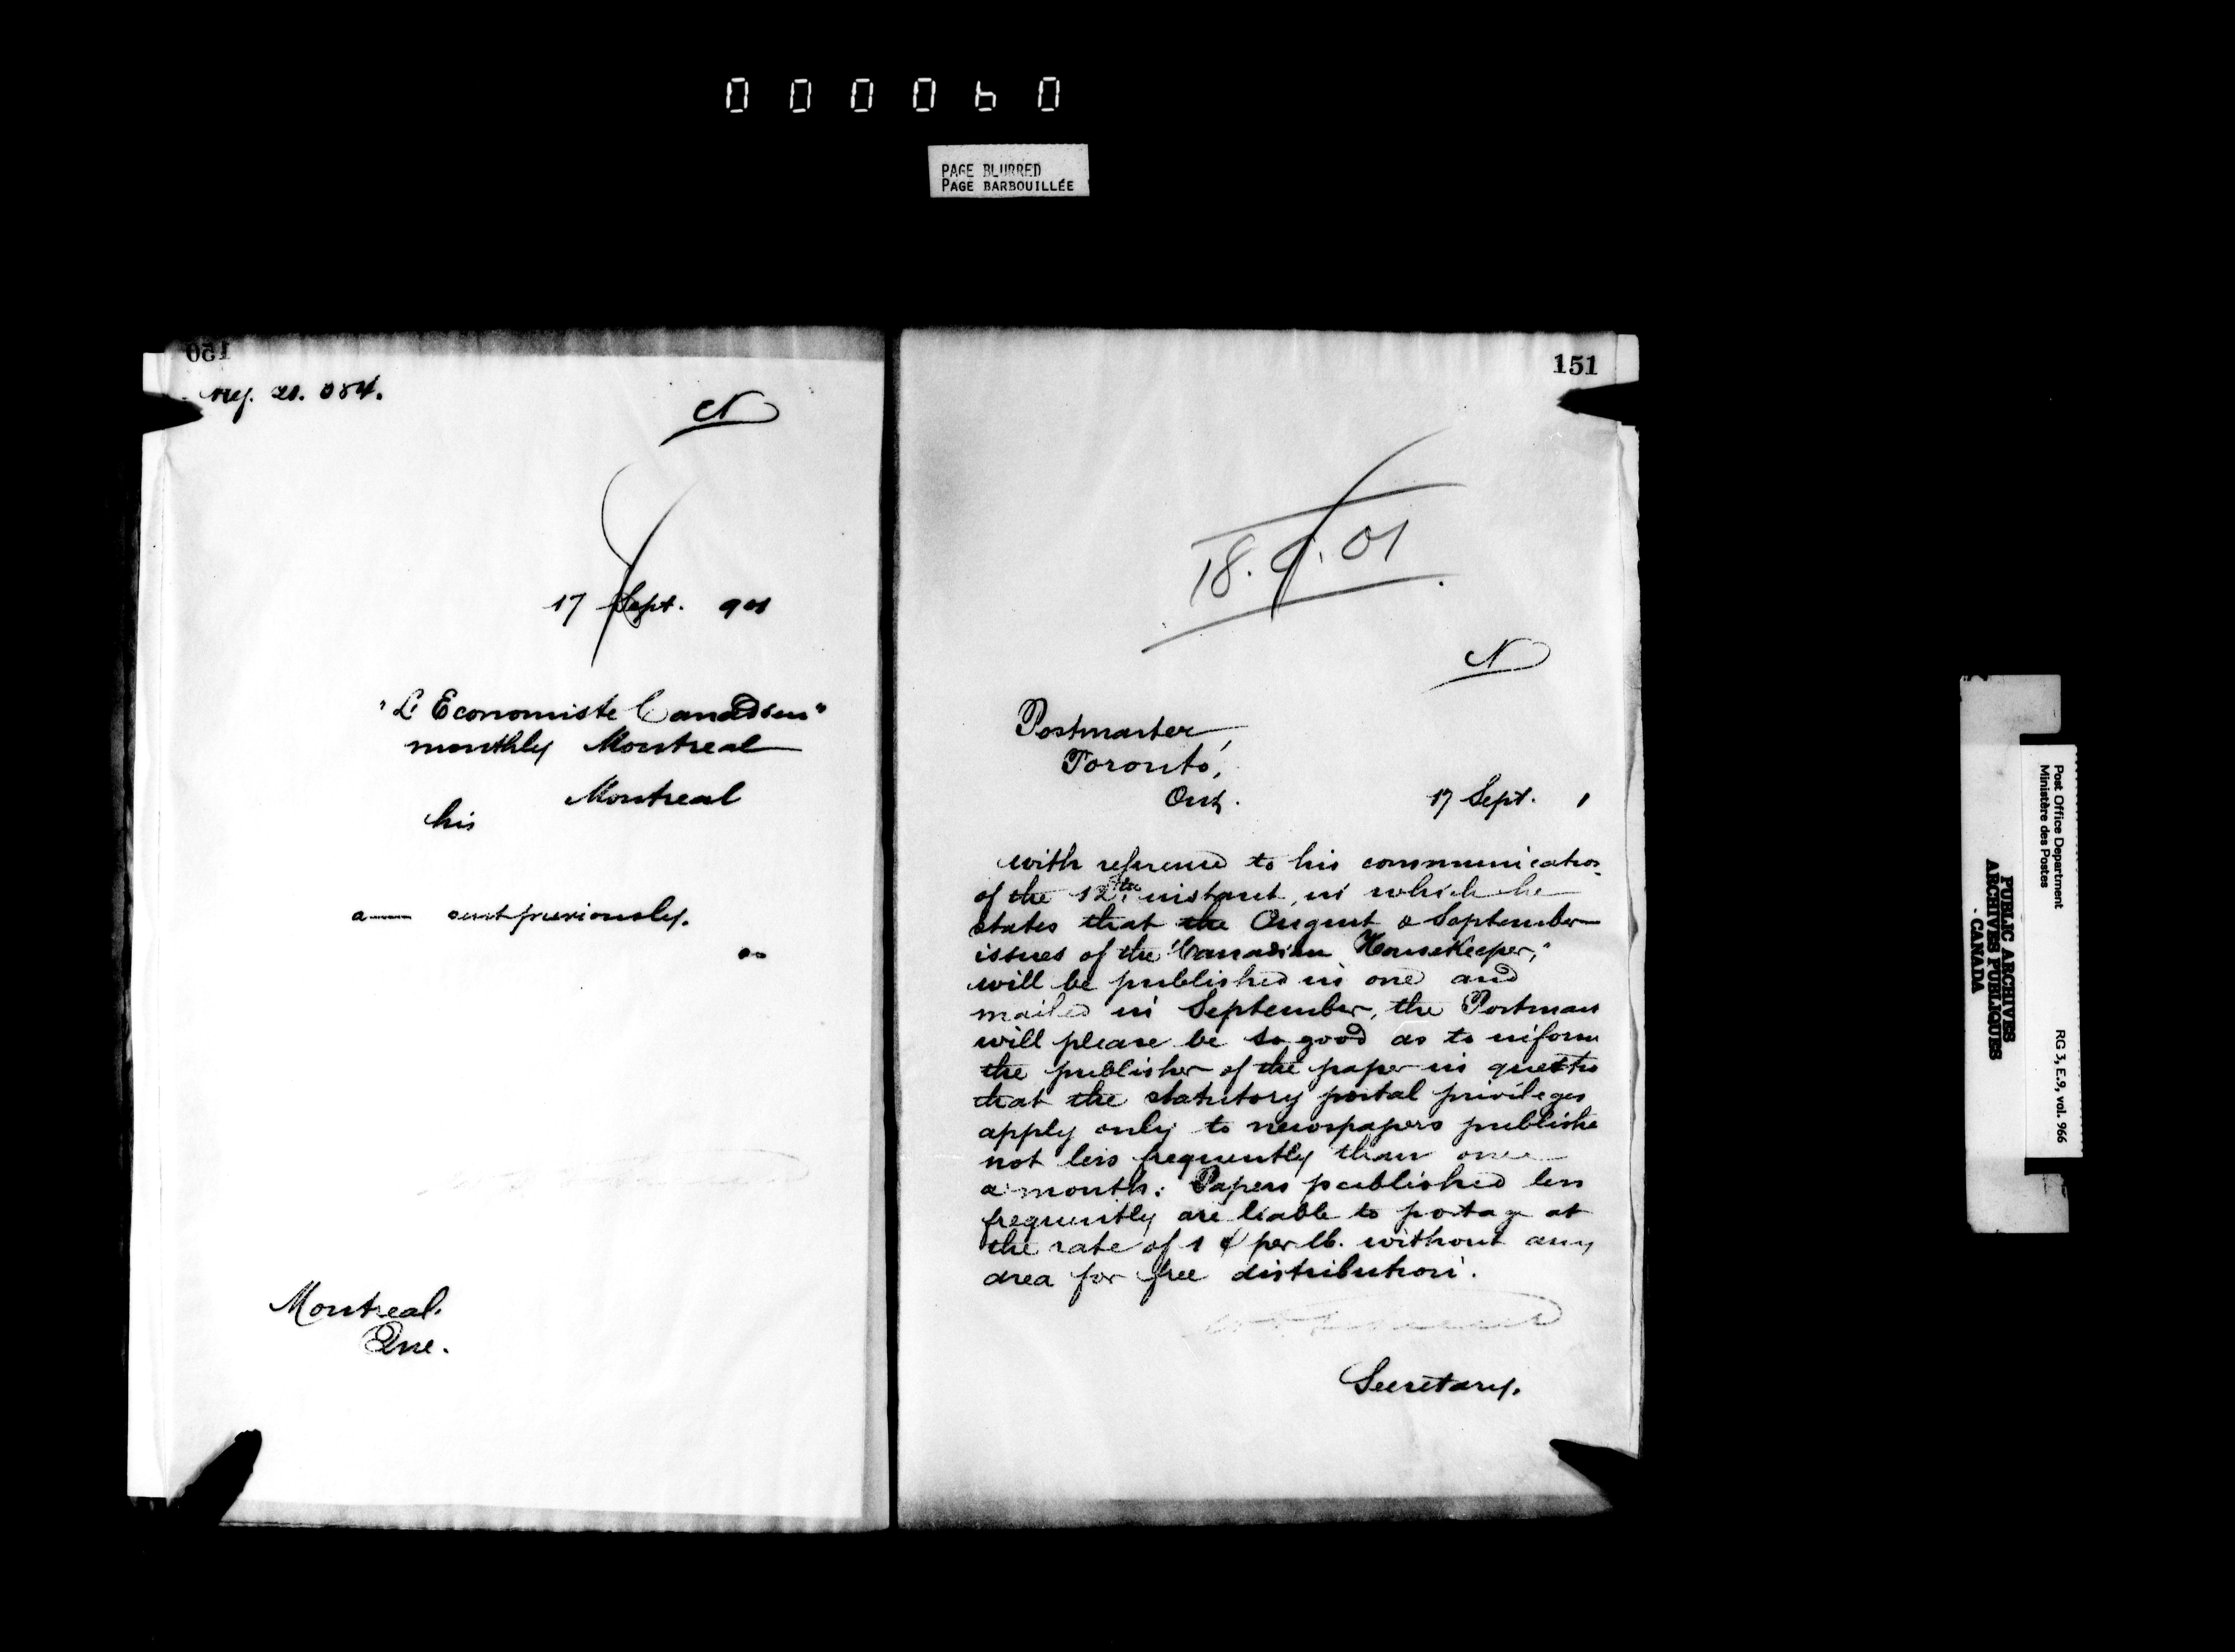 000060
PAGE BLURRED
PAGE BARBOUILLÉE
150
21. 084.
N
17 Sept. 901
"L'Economiste Canadien"
monthly Montreal
Montreal
his
a— sent previously.
Montreal.
Que.
151
18.9.01
N
Postmaster,
Toronto,
Ont.
17 Sept. 1
with reference to his communication
of the 12th. instant, in which he
states that the August & September
issues of the "Canadian HouseKeeper,"
will be published in one and
mailed in September, the Postmas
will please be so good as to inform
the publisher of the paper in questio
that the statutory postal privileges
apply only to newspapers publishe
not less frequently than once
a month: Papers published less
frequently are liable to postage at
the rate of 1 ¢ per lb. without any
area for free distribution.
Secretary.
Post Office Department
Ministère des Postes
RG 3, E.9, vol. 966
PUBLIC ARCHIVES
ARCHIVES PUBLIQUES
CANADA